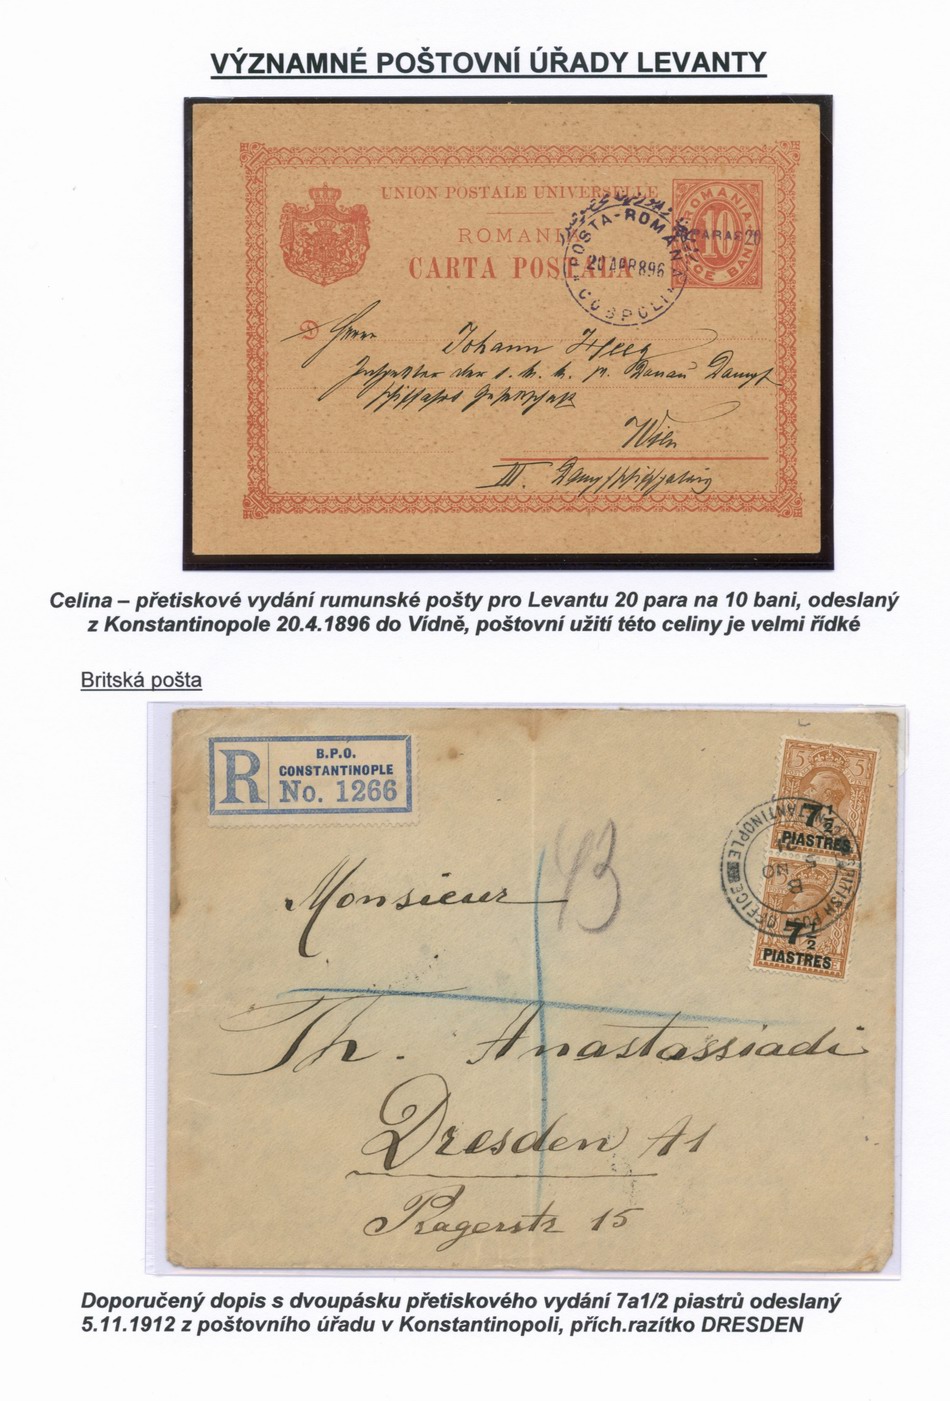 VÝZNAMNÉ POŠTOVNÍ ÚŘADY LEVANTY
UNION POSTALE UNIVERSELLE
ROMANIA
CARTA POSTALA
ROMANIA
10
PARAS 20
BANI
POSTA-ROMÂNA
20 APR 896
COSPOLI
Herrn
Johann
Inspektor der Donau Dampf
schiffahrt Gesellschaft
Wien
III.
Celina – přetiskové vydání rumunské pošty pro Levantu 20 para na 10 bani, odeslaný
z Konstantinopole 20.4.1896 do Vídně, poštovní užití této celiny je velmi řídké
Britská pošta
R
B.P.O.
CONSTANTINOPLE
No. 1266
43
5 5
7½
PIASTRES
BRITISH POST OFFICE
CONSTANTINOPLE
B
5 NO
21
7½
PIASTRES
Monsieur
Th. Anastassiadi
Dresden A1
Pragerstr 15
Doporučený dopis s dvoupásku přetiskového vydání 7a1/2 piastrů odeslaný
5.11.1912 z poštovního úřadu v Konstantinopoli, přích.razítko DRESDEN